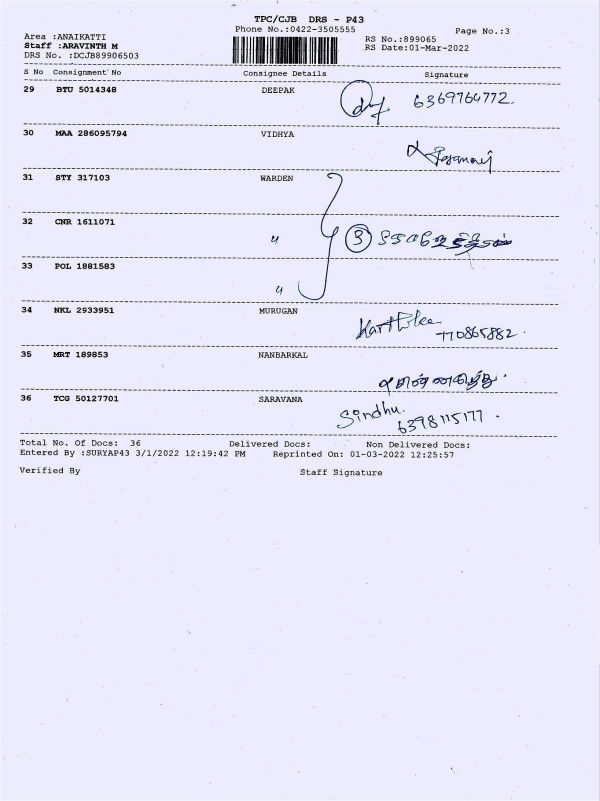 TPC/CJB DRS - P43
Phone No.:0422-3505555
Page No.:3
Area :ANAIKATTI
RS No.:899065
Staff :ARAVINTH M
RS Date:01-Mar-2022
DRS No. :DCJB89906503
S No Consignment No Consignee Details Signature
29 BTU 5014348 DEEPAK 6369764772.
30 MAA 286095794 VIDHYA
31 STY 317103 WARDEN
32 CNR 1611071 " 3
33 POL 1881583 "
34 NKL 2933951 MURUGAN
770865882.
35 MRT 189853 NANBARKAL
36 TCG 50127701 SARAVANA Sindhu.
6398115177.
Total No. Of Docs: 36 Delivered Docs: Non Delivered Docs:
Entered By :SURYAP43 3/1/2022 12:19:42 PM Reprinted On: 01-03-2022 12:25:57
Verified By Staff Signature